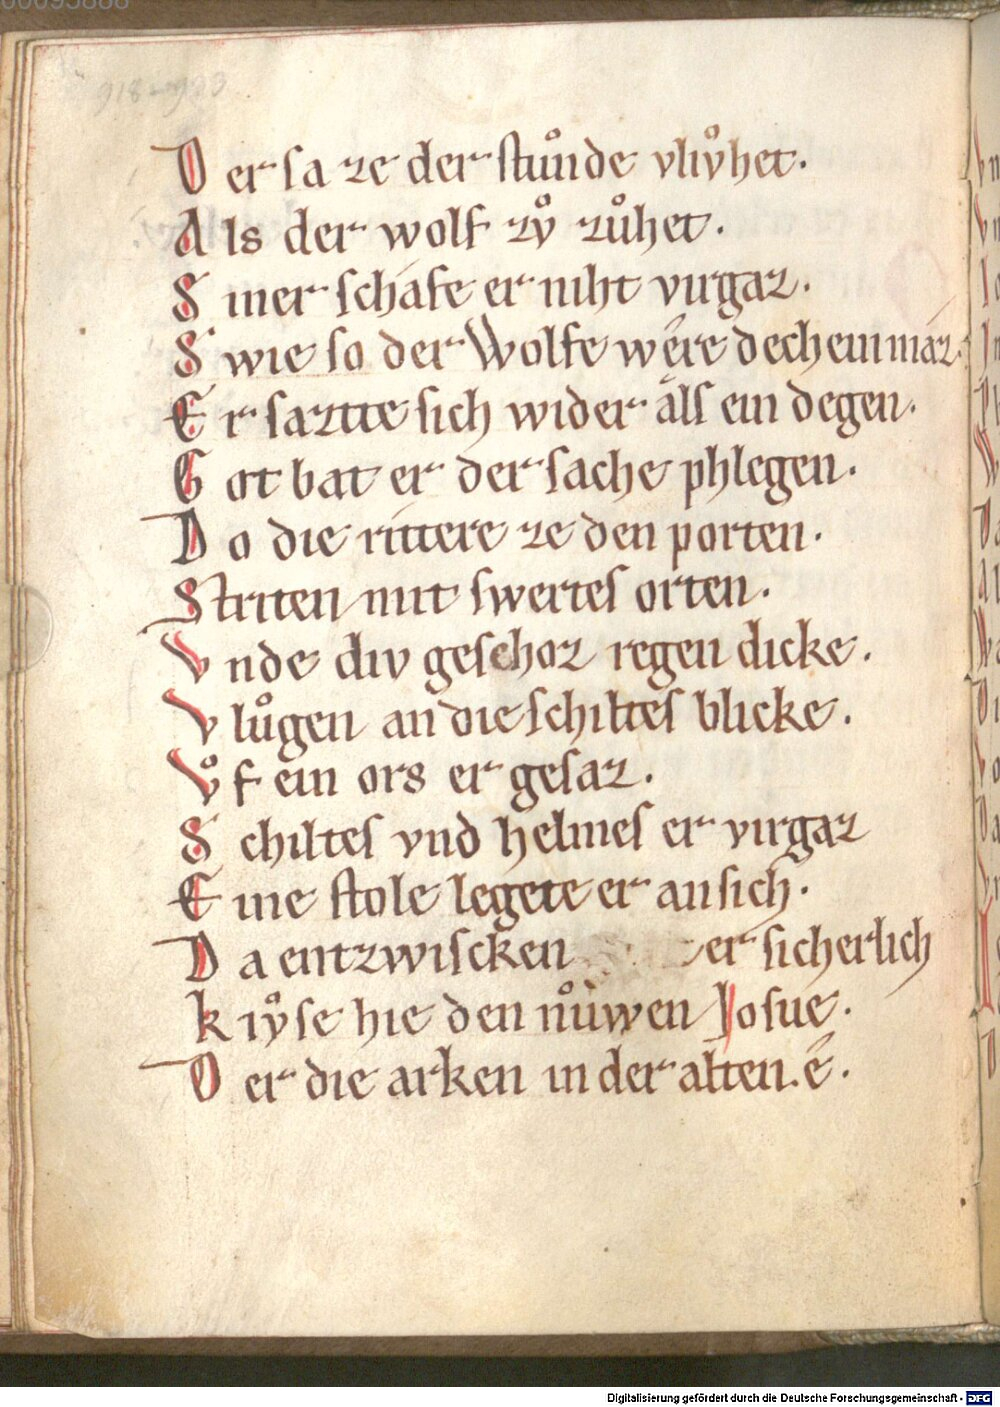 00095888
918-933
D er sa ze der stůnde vlıv̊het.
A ls der wolf zv̊ zůhet.
S iner schafe er niht virgaz.
S wie so der Wolfe wêre dechein maz.
E r saztte sich wider als ein degen.
G ot bat er der sache phlegen.
D o die rittere ze den porten.
Striten mit swertes orten.
V nde div geschoz regen dicke.
V lůgen an die schiltes blicke.
V̊ f ein ors er gesaz.
S chiltes vnd helmes er virgaz
E ine stole legete er an sich.
D a entzwiscken er sicherlich
k iv̊se hie den nůwen Josue.
D er die arken in der alten. é.
Digitalisierung gefördert durch die Deutsche Forschungsgemeinschaft - DFG